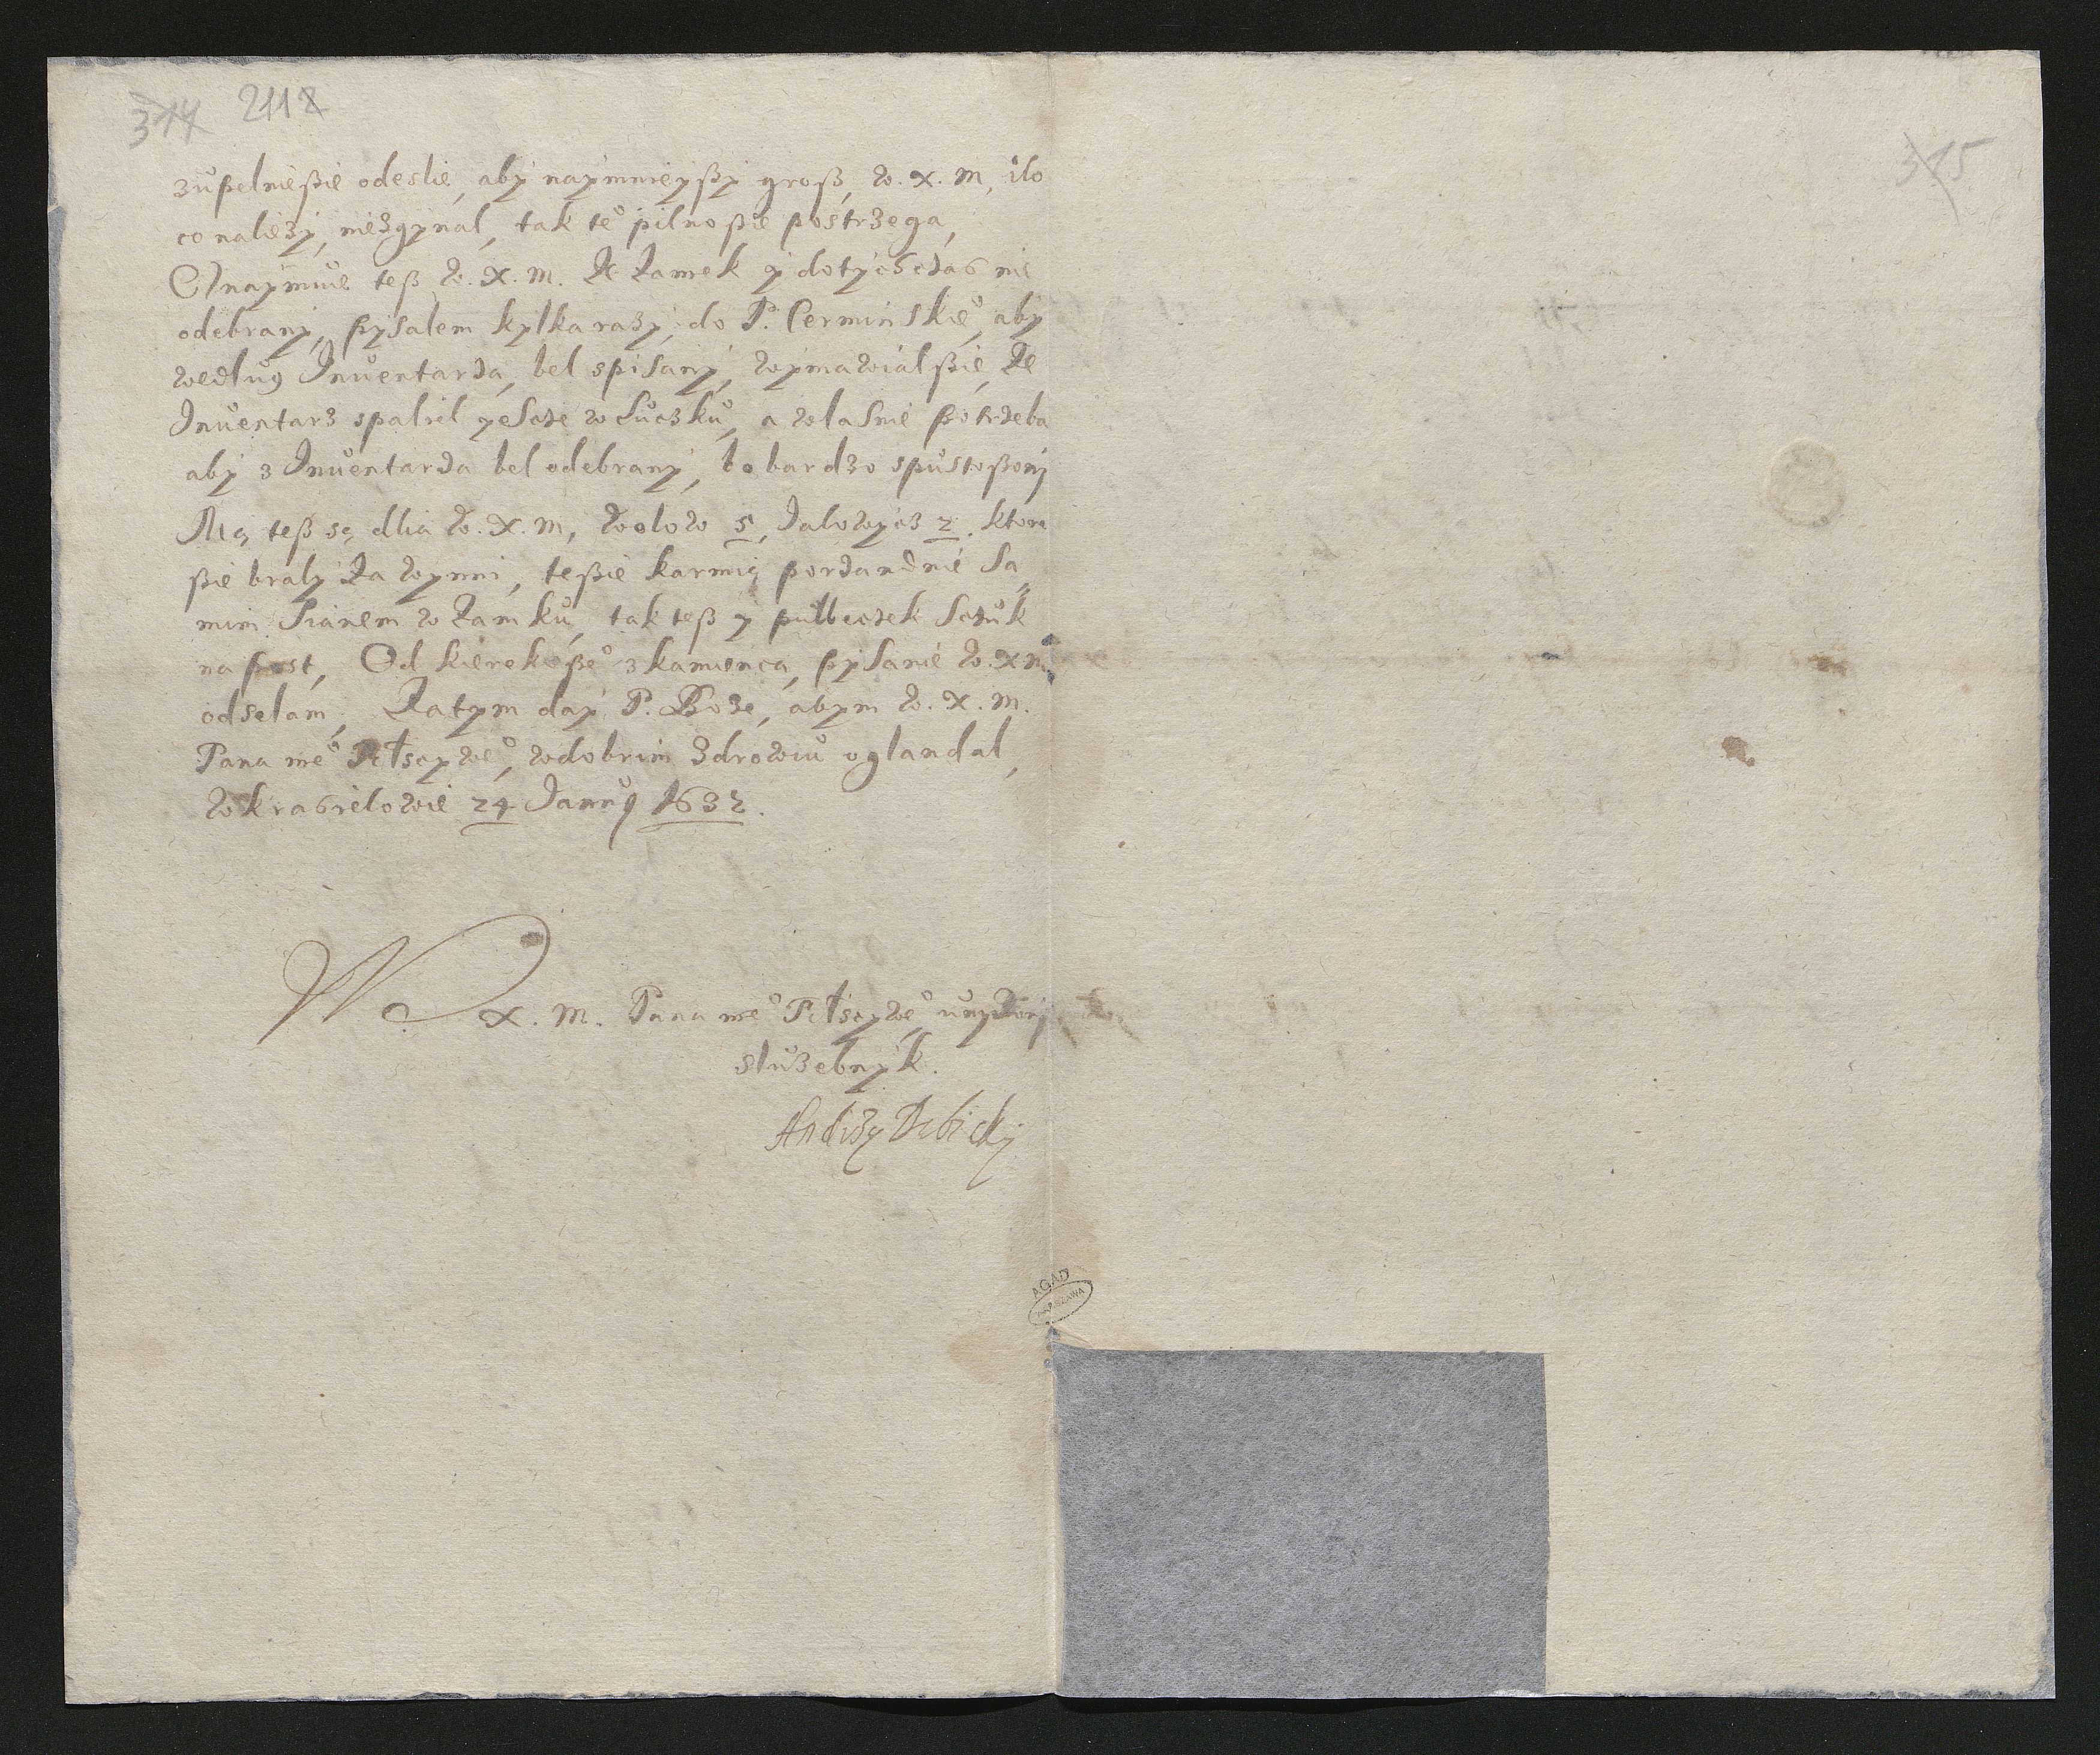 314 2112
315
zupelnießie odeslie, aby naymnieyßy groß, W. X. M, ilo
co należy, niezgynal, tak te° pilno ßie postrzega,
Oznaymuie teß W. X. M. Że Zamek y dotychczas nie
odebrany, pysalem kylka razy, do P. Cerminskie°, aby
według Inuentarza, bel spisany, wymawial ßie, Że
Inuentarz spaliel yescze w Lucsku, a wlasnie potrzeba
aby z Inuentarza bel odebrany, bo bardzo spustoßony
Alie teß są dlia W. X. M, Wolow 5, Jalowycz 2. ktore
ßie braly Za wynni, teßie karmią porzandnie sa
mim Sianem w Zamku, tak teß y pulbeczek sztuk
na post, Od kiereke ße° z kamienca, pysanie W. X M.
odselam, Zatym day P. Boże, abym W. X. M.
Pana me° Młscywe°, w dobrim zdrowiu oglandal,
W krasielowie 24 Januq 1632.
W X. M. Pana me° Młscywe° unyżony
służebnyk.
Andrzy Debicky
AGAD
WARSZAWA